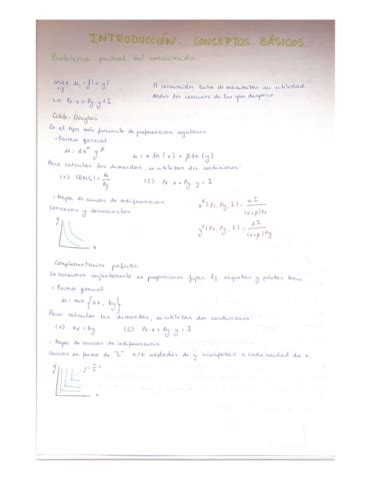 INTRODUCCIÓN. CONCEPTOS BÁSICOS
Problema primal del consumidor
max u = f(x,y)
x,y
s.a. Px·x + Py·y = I
El consumidor trata de maximizar su utilidad
dados los recursos de los que dispone
Cobb-Douglas
Es el tipo más frecuente de preferencias regulares
- Forma general
u = Ax^α y^β
u = α ln(x) + β ln(y)
Para calcular las demandas, se utilizan dos condiciones:
(1) |RMS| = Px/Py
(2) Px·x + Py·y = I
- Mapa de curvas de indiferencia
Convexas y decrecientes
x*(Px, Py, I) = αI/(α+β)Px
y*(Px, Py, I) = βI/(α+β)Py
y
x
Complementarios perfectos
Se consumen conjuntamente en proporciones fijas. Ej:
- Forma general
u = min {ax, by}
Para calcular las demandas, se utilizan dos condiciones:
(1) ax = by
(2) Px·x + Py·y = I
- Mapa de curvas de indiferencia
Curvas en forma de "L" a/b unidades de y acompañan a cada unidad de x.
y
y = a/b x
x